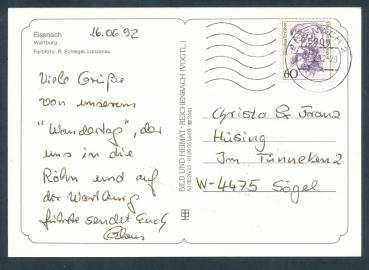 16.06.92
Eisenach
Wartburg
Farbfoto: R. Schlegel, Lunzenau
Viele Grüße
von unserem
"Wandertag", der
uns in die
Röhn und auf
der Wartburg
führte sendet Euch
BILD UND HEIMAT · REICHENBACH (VOGTL.)
60
Christa & Franz
Hüsing
Im Tünneken 2
W-4475 Sögel